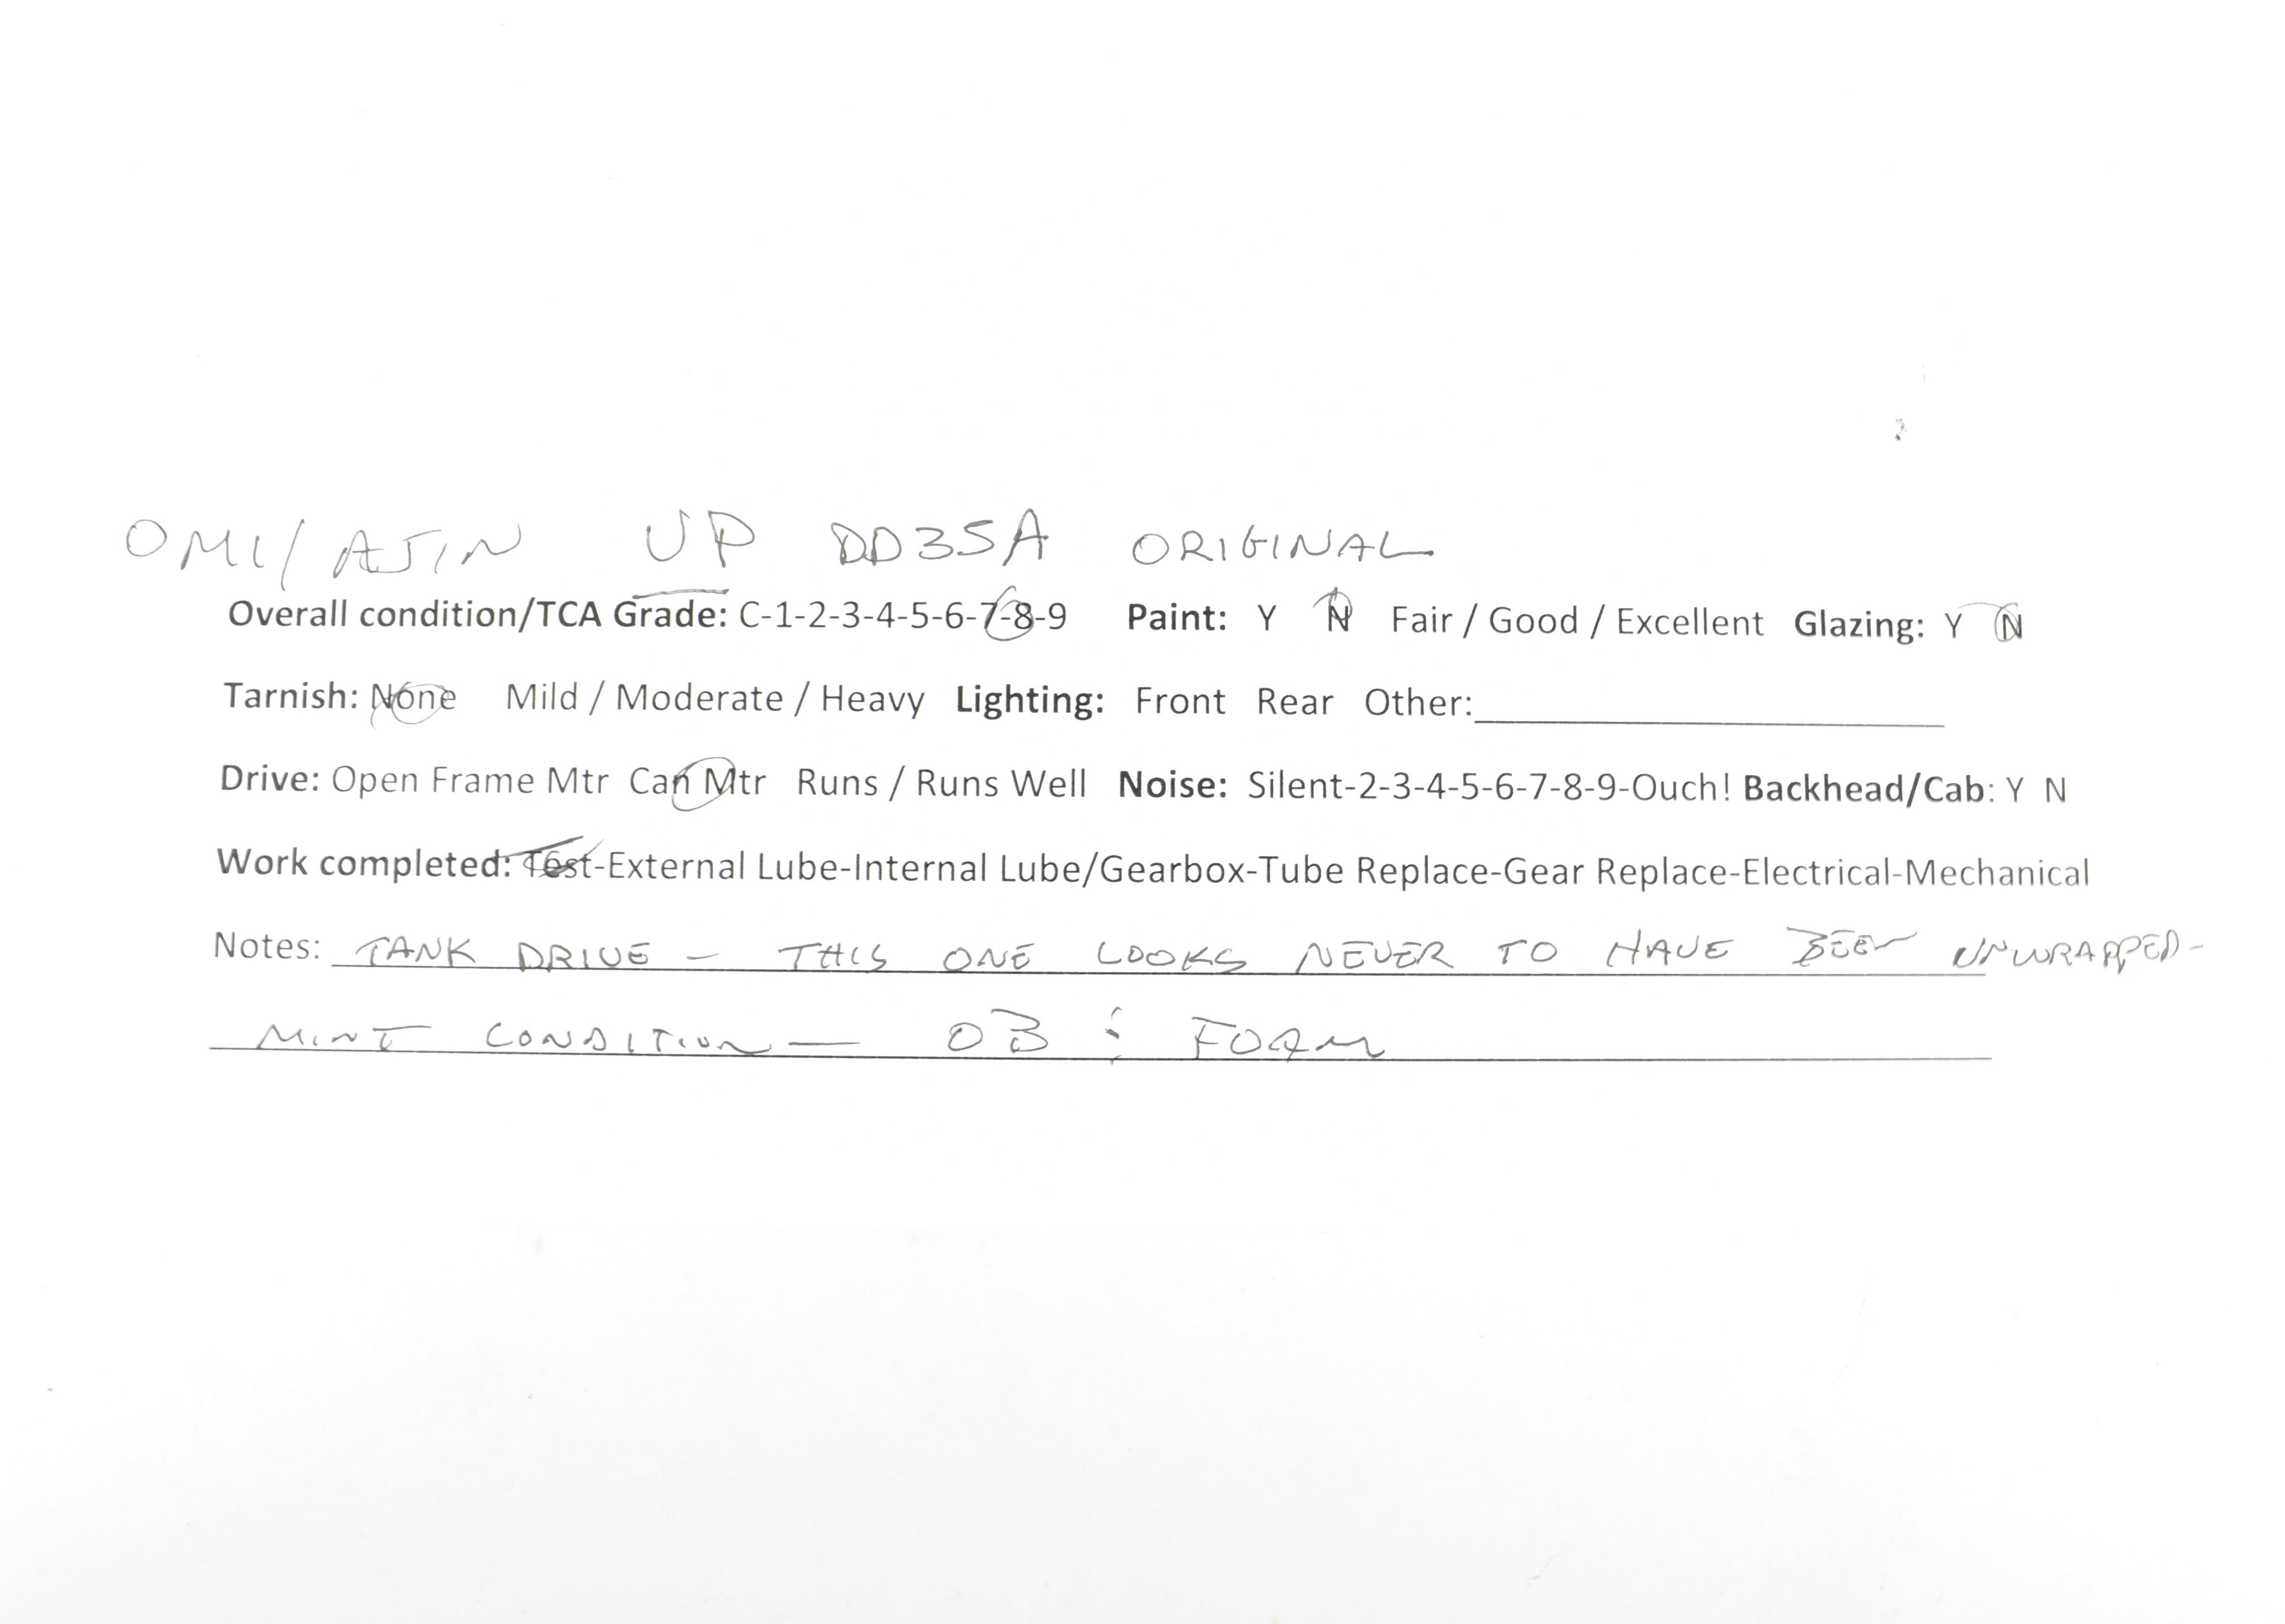 OMI/AJIN UP DD35A ORIGINAL
Overall condition/TCA Grade: C-1-2-3-4-5-6-7-8-9 Paint: Y N Fair / Good / Excellent Glazing: Y N
Tarnish: None Mild / Moderate / Heavy Lighting: Front Rear Other:
Drive: Open Frame Mtr Can Mtr Runs / Runs Well Noise: Silent-2-3-4-5-6-7-8-9-Ouch! Backhead/Cab: Y N
Work completed: Test-External Lube-Internal Lube/Gearbox-Tube Replace-Gear Replace-Electrical-Mechanical
Notes: TANK DRIVE - THIS ONE LOOKS NEVER TO HAVE BEEN UNWRAPPED-
MINT CONDITION - OB & FOAM